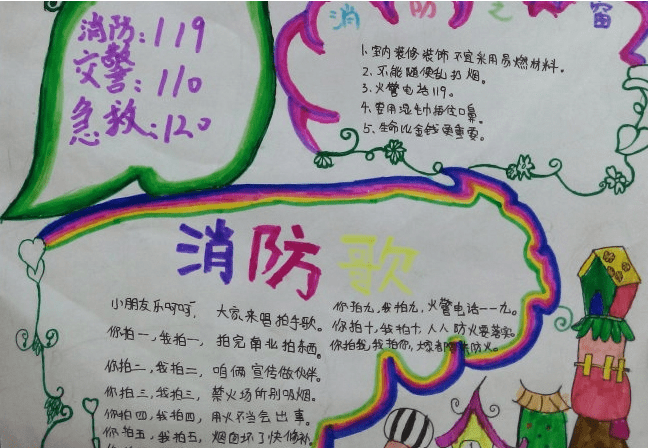 消防：119
交警：110
急救：120
消 防 之 窗
1、室内装修装饰不宜采用易燃材料。
2、不能随便乱扔烟。
3、火警电话119。
4、要用湿毛巾捂住口鼻。
5、生命比金钱更重要。
消防歌
小朋友乐呵呵， 大家来唱拍手歌。
你拍一，我拍一， 拍完单业拍东西。
你拍二，我拍二， 咱俩宣传做伙伴。
你拍三，我拍三， 禁火场所别吸烟。
你拍四，我拍四， 用火不当会出事。
你拍五，我拍五， 烟囱坏了快修补。
你拍九，我拍九，火警电话一一九。
你拍十，我拍十，人人防火要落实。
你拍我，我拍你，大家都防火。